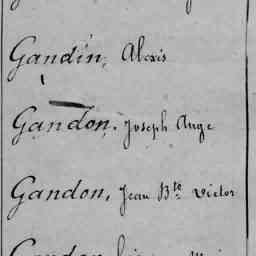 Gandin, Alexis
Gandon. Joseph Ange
Gandon, Jean Bte Victor
Gandon